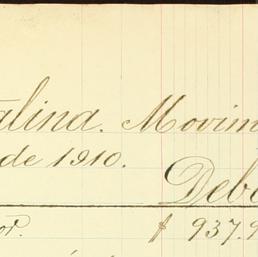 alina. Movim
de 1910.
Debe
or. $ 937.9